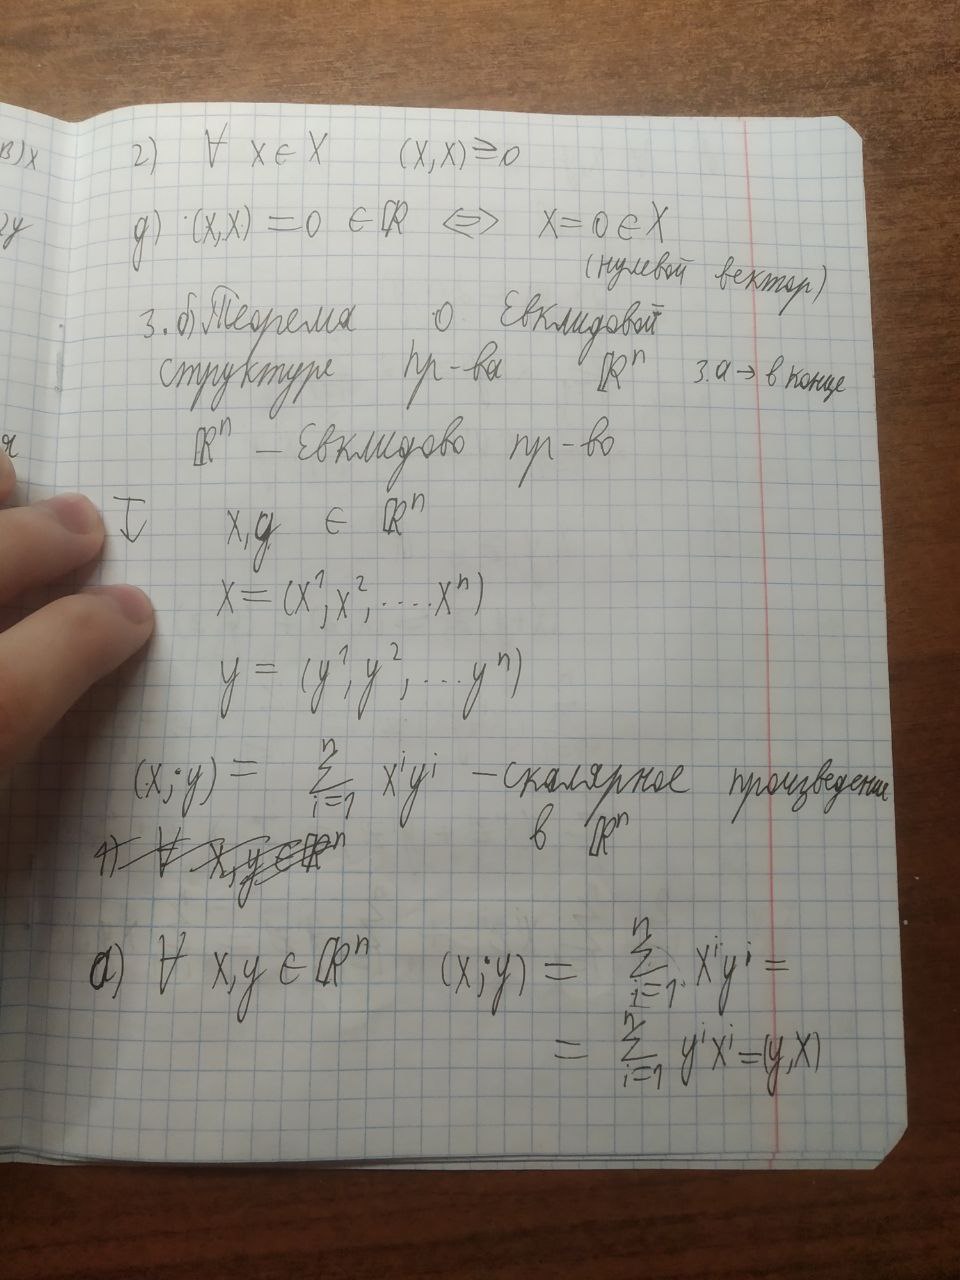 в) x
2) ∀ x ∈ X (x, x) ≥ 0
д) (x, x) = 0 ∈ ℝ ⇔ x = 0 ∈ X
(нулевой вектор)
3. б) Теорема о Евклидовой
структуре пр-ва ℝⁿ 3.а → в конце
ℝⁿ — Евклидово пр-во
x, y ∈ ℝⁿ
x = (x¹, x², .... xⁿ)
y = (y¹, y², ... yⁿ)
(x; y) = ∑ᵢ₌₁ⁿ xⁱyⁱ — скалярное произведение
в ℝⁿ
1) ∀ x, y ∈ ℝⁿ
а) ∀ x, y ∈ ℝⁿ (x; y) = ∑ᵢ₌₁ⁿ xⁱyⁱ =
= ∑ᵢ₌₁ⁿ yⁱxⁱ = (y, x)